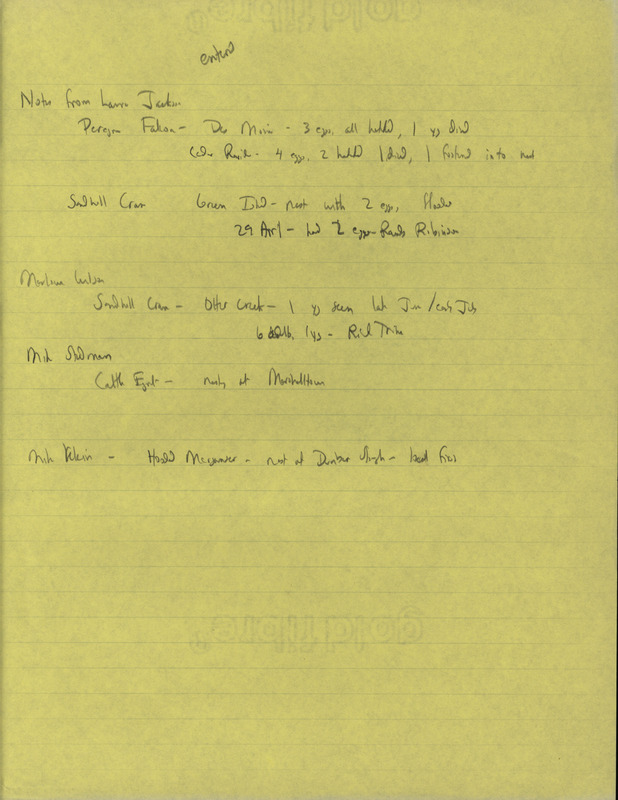 entered
Notes from Laura Jackson
Peregrin Falcon - Des Moines - 3 eggs, all hatched, 1 yg died
Cedar Rapids - 4 eggs, 2 hatched 1 died, 1 fostered into nest
Sandhill Crane Green Island - nest with 2 eggs,
29 April - had 2 eggs - Robinson
Sandhill Crane - Otter Creek - 1 yg seen late Jun / early July
6 adults, 1 yg - Rick Trine
Mik
Cattle Egret - nesting at Marshalltown
Mik - Hooded Merganser - nest at Dunbar Slough -
goldfibre